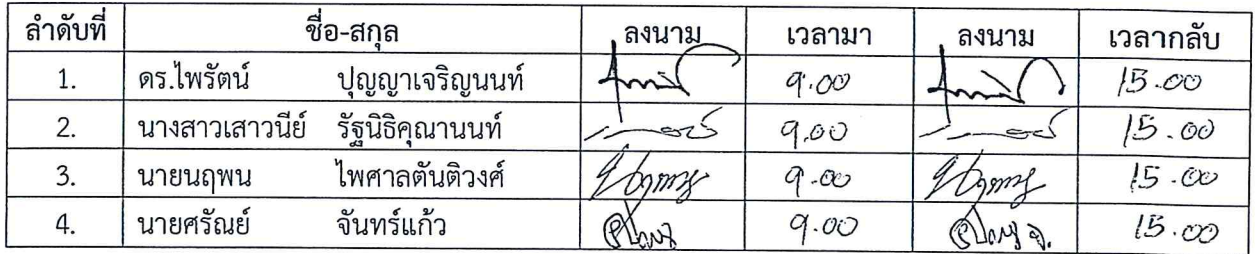 ลำดับที่ ชื่อ-สกุล ลงนาม เวลามา ลงนาม เวลากลับ
1. ดร.ไพรัตน์ ปุญญาเจริญนนท์ 9.00 15.00
2. นางสาวเสาวนีย์ รัฐนิธิคุณานนท์ 9.00 15.00
3. นายนฤพน ไพศาลตันติวงศ์ 9.00 15.00
4. นายศรัณย์ จันทร์แก้ว 9.00 15.00